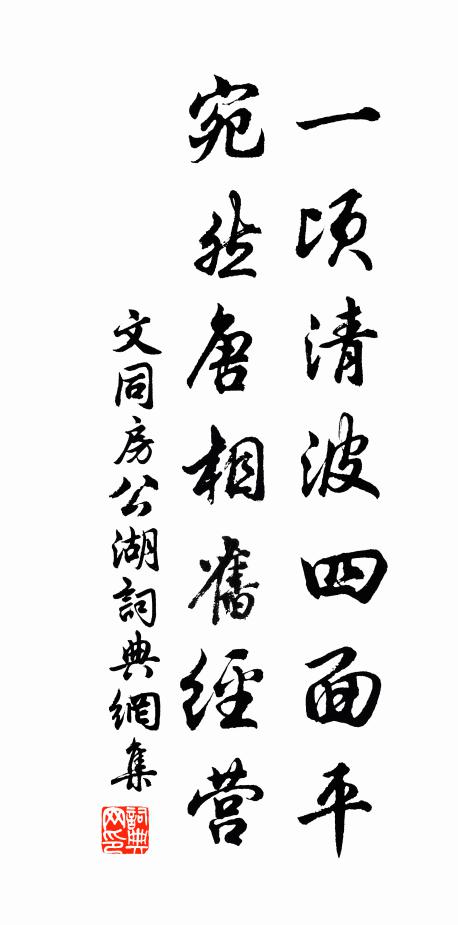 一頃清波四面平
宛然唐相舊經营
文同房公湖詞典網集
詞典网印